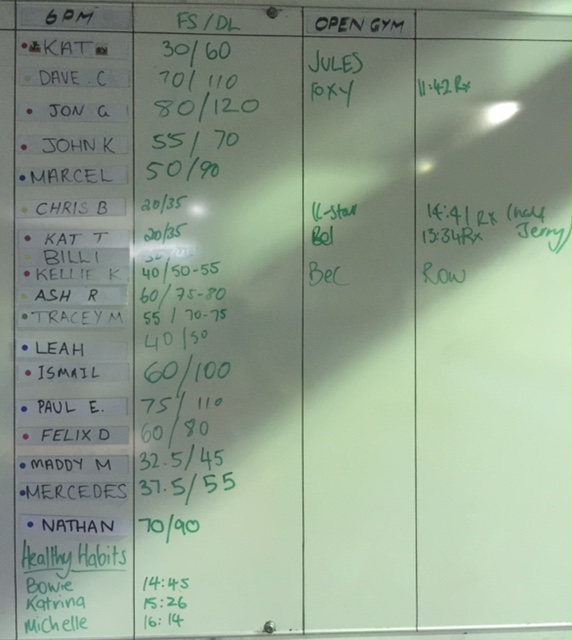 6PM FS/DL OPEN GYM
KAT 30/60
JULES
DAVE C 70/110
FOXY 11:42 Rx
JON G 80/120
JOHN K 55/70
MARCEL 50/90
CHRIS B 20/35 K-Star 14:41 Rx (half Jerry)
KAT T 20/35 Bel 13:34 Rx
BILLI
KELLIE K 40/50-55 Bec Row
ASH R 60/75-80
TRACEY M 55/70-75
LEAH 40/50
ISMAIL 60/100
PAUL E. 75/110
FELIX D 60/80
MADDY M 32.5/45
MERCEDES 37.5/55
NATHAN 70/90
Healthy Habits
Bowie 14:45
Katrina 15:26
Michelle 16:14